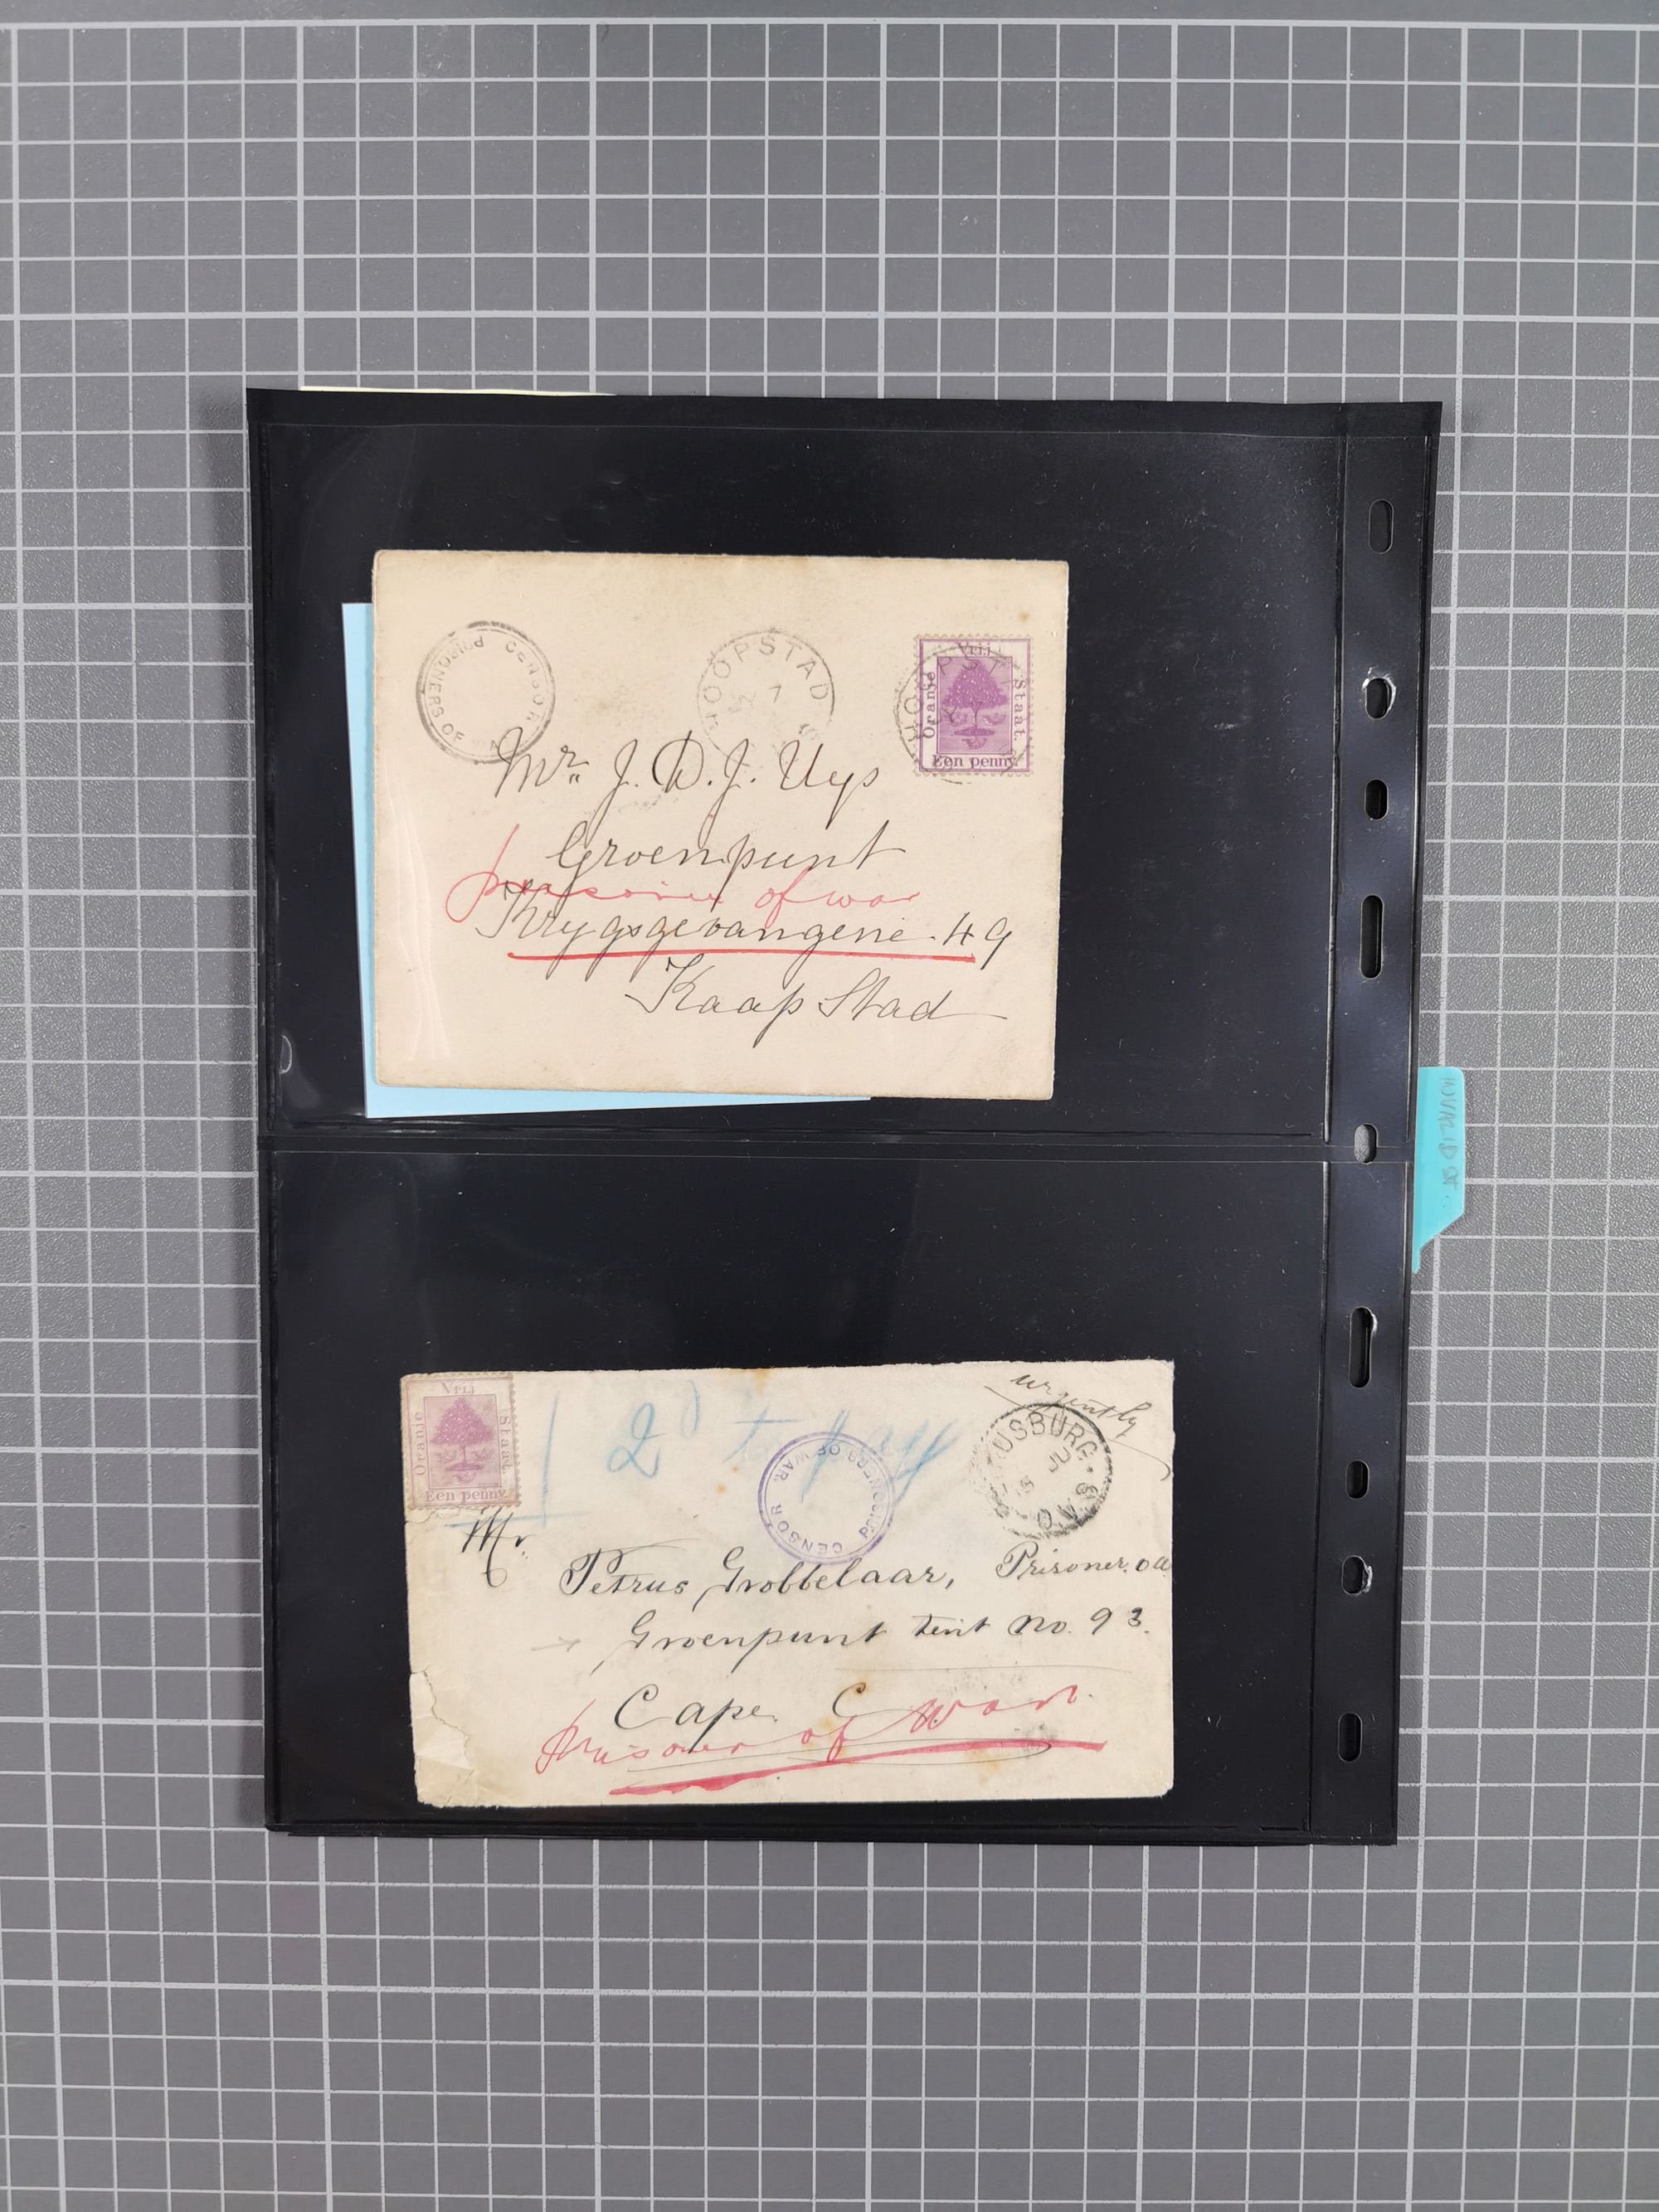 PRISONERS OF
CENSOR
HOOPSTAD
7
Vrij
Oranje
Staat.
Een penny
Mr. J. D. J. Uys
Groenpunt
prisoner of war
Krygsgevangene. 49
Kaap Stad
Vrij
Oranje
Staat.
Een penny.
2d to pay
urgently
USBURG.
JU
O.V.S
CENSOR
PRISONERS OF WAR.
Mr.
Petrus Grobbelaar, Prisoner.
Groenpunt tent No. 93.
Cape C
Prisoner of War.